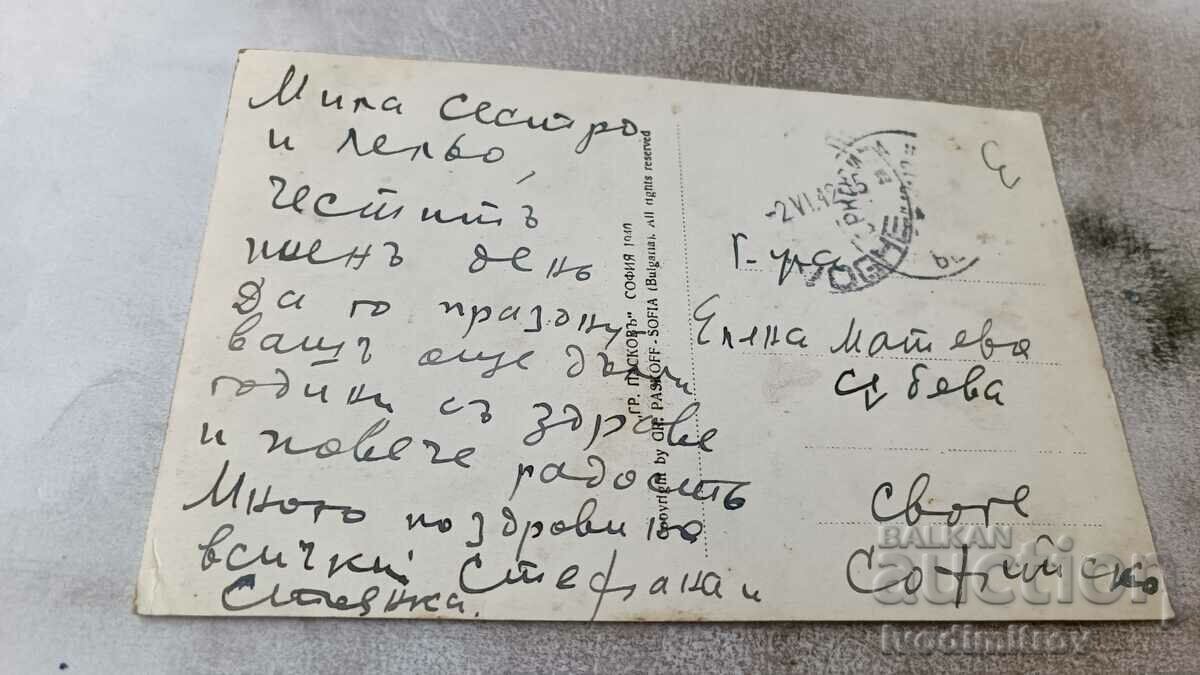 Мила сестро
и лельо,
Честитъ
именъ день
Да го празну
вашъ още дълги
години съ здраве
и повече радость
Много поздрави на
всички Стефана и
Стоянка.
"ГР. ПАСКОВЪ" СОФИЯ 1940
Copyright by GR. PASKOFF - SOFIA (Bulgaria). All rights reserved
-2.VI.42
Г-ца
Еляна Матева
Своге
Софийско
BALKAN
auction
ivodimitrov